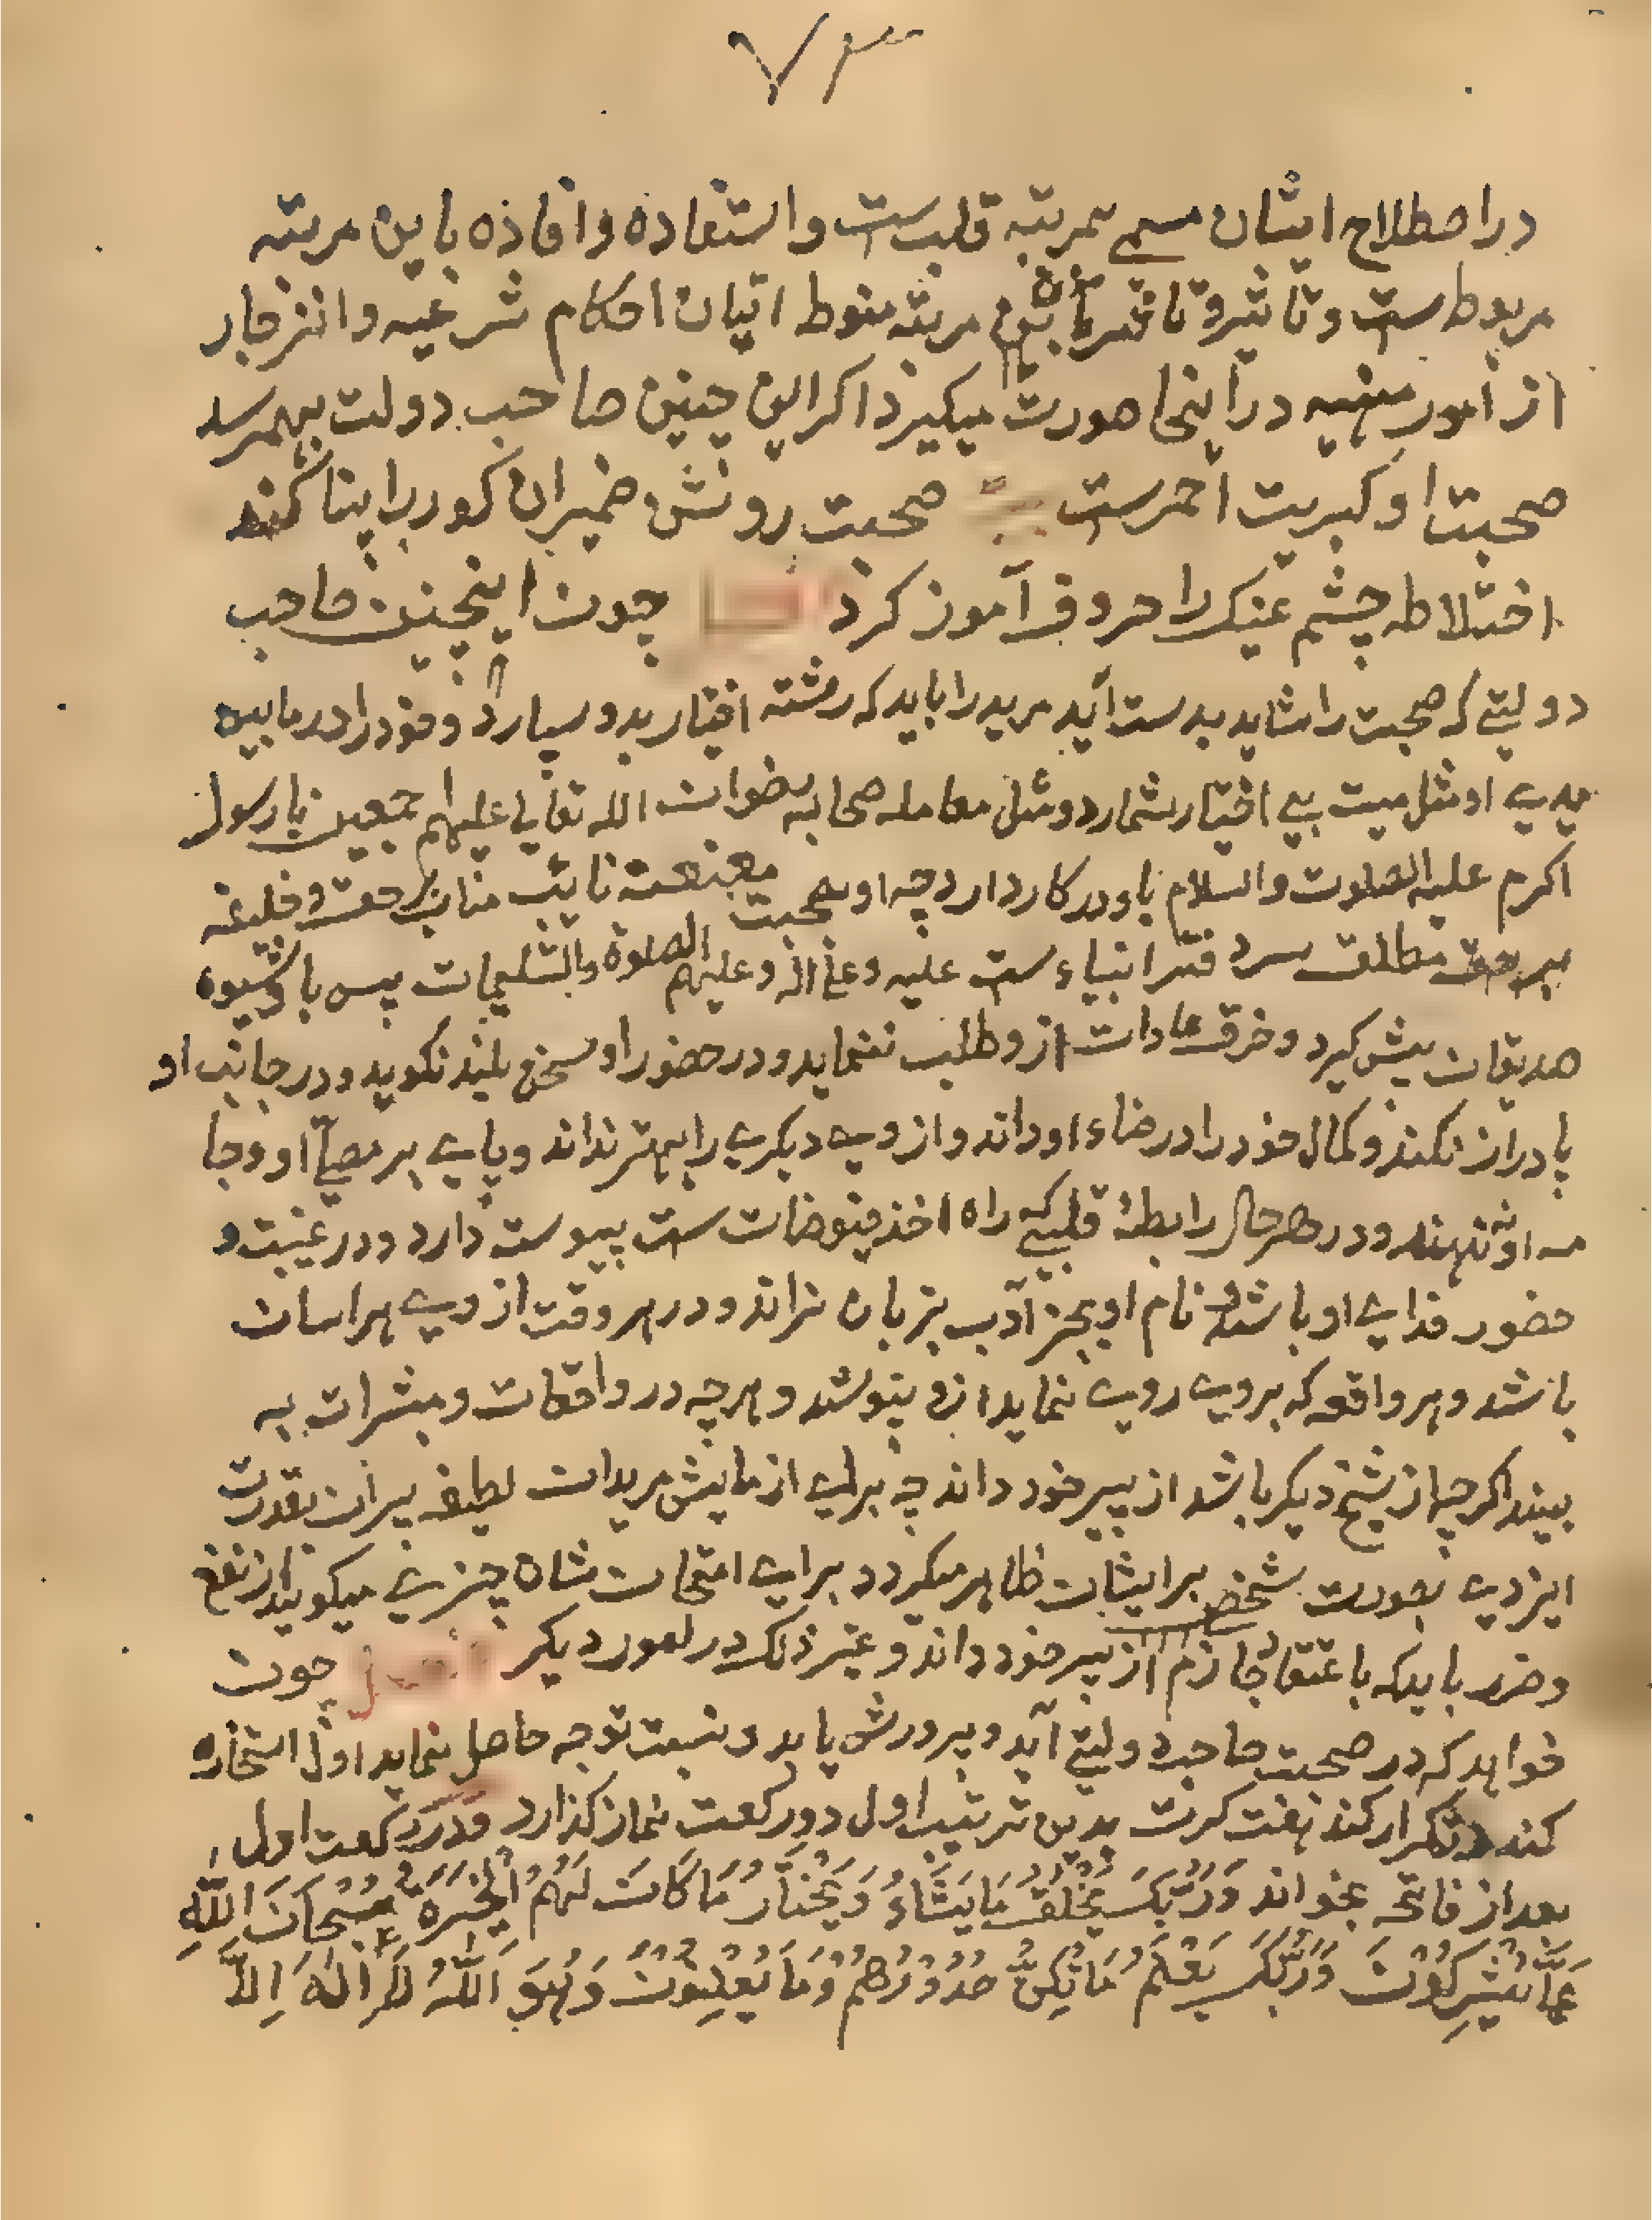 ۷۳
در اصطلاح ایشان مسمی بمرتبه قلب ست و استفاده و افاده باین مرتبه
مربوط ست و تاثیر و تاثر باین مرتبه منوط اتیان احکام شرعیه و انزجار
از امور منهیه در اینجا صورت میکیرد اکر این چنین صاحب دولت بهمرسد
صحبت او کبریت احمرست صحبت روشن ضمیران کور را بینا کند
اختلاط چشم عینک را حروف آموز کرد چون اینچنین صاحب
دولتے که صحبت را شاید بدست آید مرید را باید که رشته اختیار بدو سپارد و خود را در مابین
یدے او مثل میت بے اختیار شمارد و مثل معامله صحابه رضوان الله تعالی علیهم اجمعین با رسول
اکرم علیه الصلوت والسلام باو در کار دارد چه او نائب مناب حق و خلیفه
مطلق سر دفتر انبیاء ست علیه و علی اله و علیهم الصلوة والتسلیمات پس باو شیوه
صدیقان پیش کیرد و خرق عادات ازو طلب ننماید و در حضور او سخن بلند نکوید و در جانب او
پا دراز نکند و کمال خود را در رضاء او داند و از وے دیکرے را بهتر نداند و پاے بر مصلّٰے او و جا
مه او ننهند و در هر حال رابطهٔ قلبے که راه اخذ فیوضات ست پیوست دارد و در غیبت و
حضور فداے او باشد و نام او بجز ادب بزبان نراند و در هر وقت از وے هراسان
باشد و هر واقعه که بروے روے نماید ازو نپوشد و هرچه در واقعات و مبشرات به
بیند اکرچه از شیخ دیکر باشد از پیر خود داند چه براے ازمایش مریدان لطیفه پیران بقدرت
ایزدے بصورت شخص برایشان ظاهر میکردد براے امتحان شان چیزے میکویند از نفع
و ضرر باید که باعتقاد جازم از پیر خود داند و غیر ذلک در امور دیکر چون
خواهد که در صحبت صاحب دولتے آید و پرورش یابد و نسبت توجه حاصل نماید اول استخاره
کند و تکرار کند هفت کرت بدین ترتیب اول دو رکعت نماز کذارد و در رکعت اول
بعد از فاتحه بخواند وَرَبُّکَ یَخْلُقُ مَا یَشَاءُ وَیَخْتَارُ مَا کَانَ لَهُمُ الْخِیَرَةُ سُبْحَانَ اللّٰهِ
عَمَّا یُشْرِکُوْنَ وَرَبُّکَ یَعْلَمُ مَا تُکِنُّ صُدُوْرُهُمْ وَمَا یُعْلِنُوْنَ وَهُوَ اللّٰهُ لَا اِلٰهَ اِلَّا